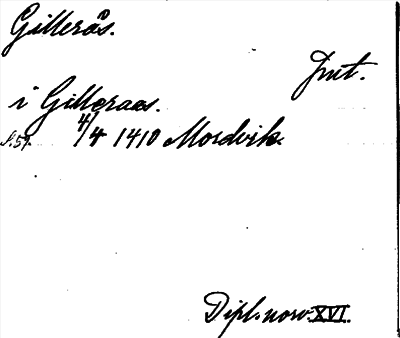 Gillerås.
Jmt.
i Gilleraas.
s. 59. 4/4 1410 Mordvik.
Dipl. norv. XVI.